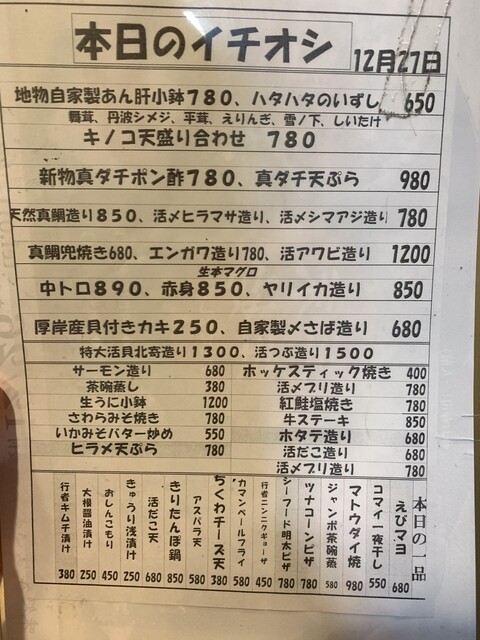 本日のイチオシ
12月27日
地物自家製あん肝小鉢780、ハタハタのいずし 650
舞茸、丹波シメジ、平茸、えりんぎ、雪ノ下、しいたけ
キノコ天盛り合わせ 780
新物真ダチポン酢780、真ダチ天ぷら 980
天然真鯛造り850、活〆ヒラマサ造り、活〆シマアジ造り 780
真鯛兜焼き680、エンガワ造り780、活アワビ造り 1200
生本マグロ
中トロ890、赤身850、ヤリイカ造り 850
厚岸産貝付きカキ250、自家製〆さば造り 680
特大活貝北寄造り1300、活つぶ造り1500
サーモン造り 680 ホッケスティック焼き 400
茶碗蒸し 380 活〆ブリ造り 780
生うに小鉢 1200 紅鮭塩焼き 780
さわらみそ焼き 780 牛ステーキ 850
いかみそバター炒め 550 ホタテ造り 680
ヒラメ天ぷら 780 活だこ造り 680
活〆ブリ造り 780
本日の一品
えびマヨ 680
コマイ一夜干し 550
マトウダイ焼 980
ジャンボ茶碗蒸 580
ツナコーンピザ 780
シーフード明太ピザ 780
行者ニンニクギョーザ 450
カマンベールフライ 580
ちくわチーズ天 380
アスパラ天 580
きりたんぽ鍋 850
活だこ天 680
きゅうり浅漬け 250
おしんこもり 450
大根醤油漬け 250
行者キムチ漬け 380